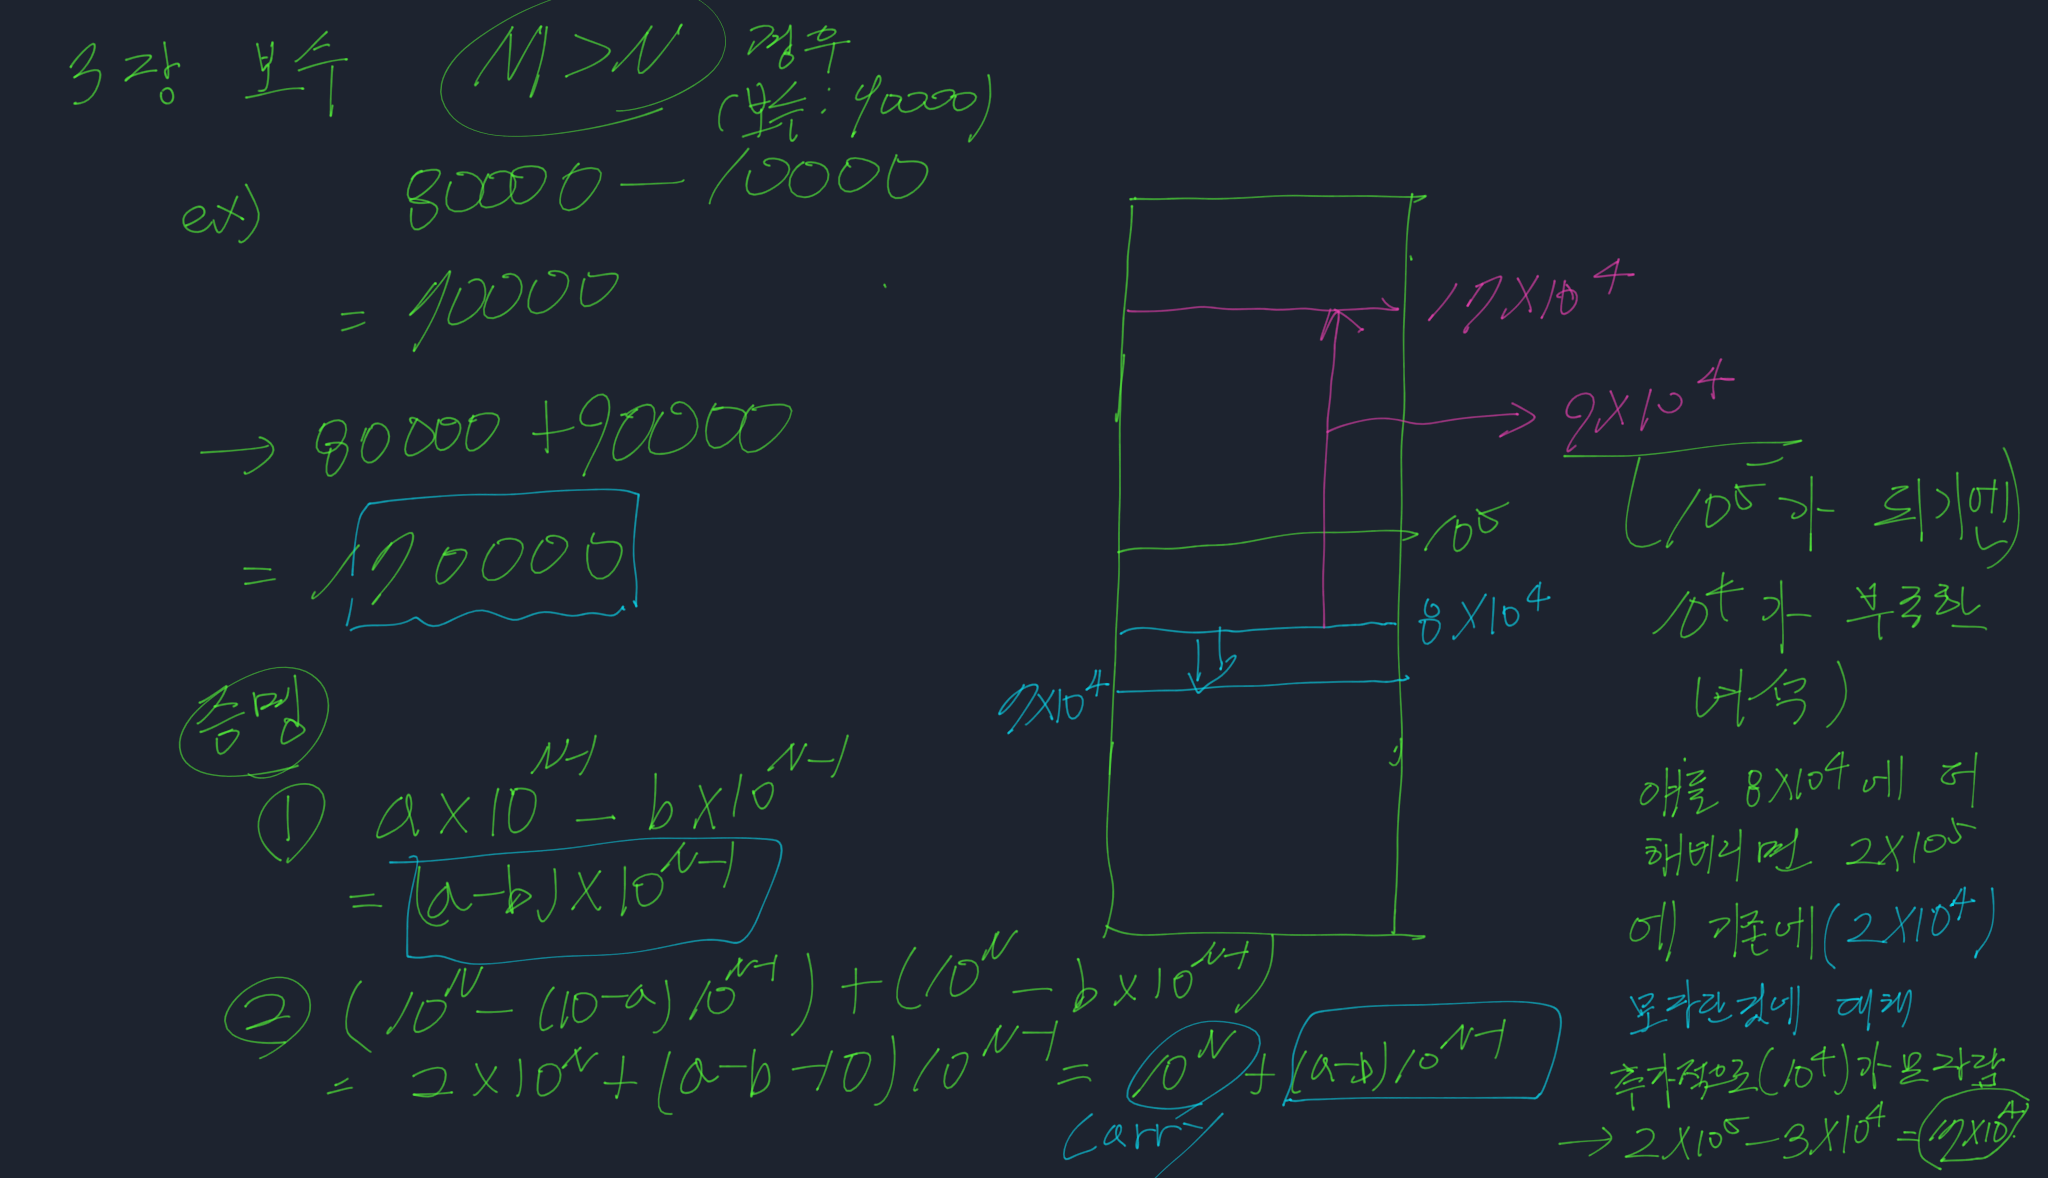 3강 보수
M > N 경우
(보수: 90000)
ex) 80000 - 10000
= 70000
→ 80000 + 90000
= 170000
증명
① a×10^{N-1} - b×10^{N-1}
= (a-b)×10^{N-1}
② (10^N - (10-a)10^{N-1}) + (10^N - b×10^{N-1})
= 2×10^N + (a-b-10)10^{N-1} = 10^N + (a-b)10^{N-1}
Carry
17×10^4
9×10^4
10^5
8×10^4
7×10^4
(10^5가 되기엔)
10^4가 부족한
녀석)
얘를 8×10^4에 더
해버리면 2×10^5
에 기존에 (2×10^4)
모자란것에 대해
추가적으로 (10^4)가 모자람
→ 2×10^5 - 3×10^4 = 17×10^4